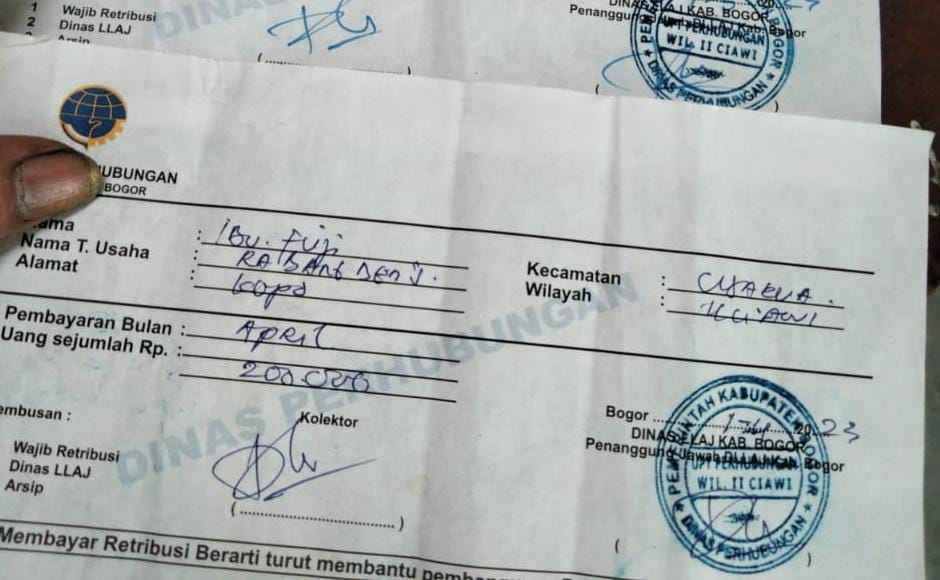 1 Wajib Retribusi
2 Dinas LLAJ
3 Arsip
(....................)
20 23
DINAS LLAJ KAB. BOGOR
Penanggung Jawab
Bogor
UPT PERHUBUNGAN
WIL. II CIAWI
DINAS PERHUBUNGAN
HUBUNGAN
BOGOR
Nama : Ibu. Fuji
Nama T. Usaha :
Alamat : kopo
Kecamatan :
Wilayah : II CIAWI
Pembayaran Bulan : April
Uang sejumlah Rp. : 200.000
DINAS PERHUBUNGAN
embusan :
Wajib Retribusi
Dinas LLAJ
Arsip
Kolektor
(....................)
Bogor .................... 20 23
DINAS LLAJ KAB. BOGOR
Penanggung Jawab
Bogor
PEMERINTAH KABUPATEN BOGOR
UPT PERHUBUNGAN
WIL. II CIAWI
DINAS PERHUBUNGAN
( )
Membayar Retribusi Berarti turut membantu